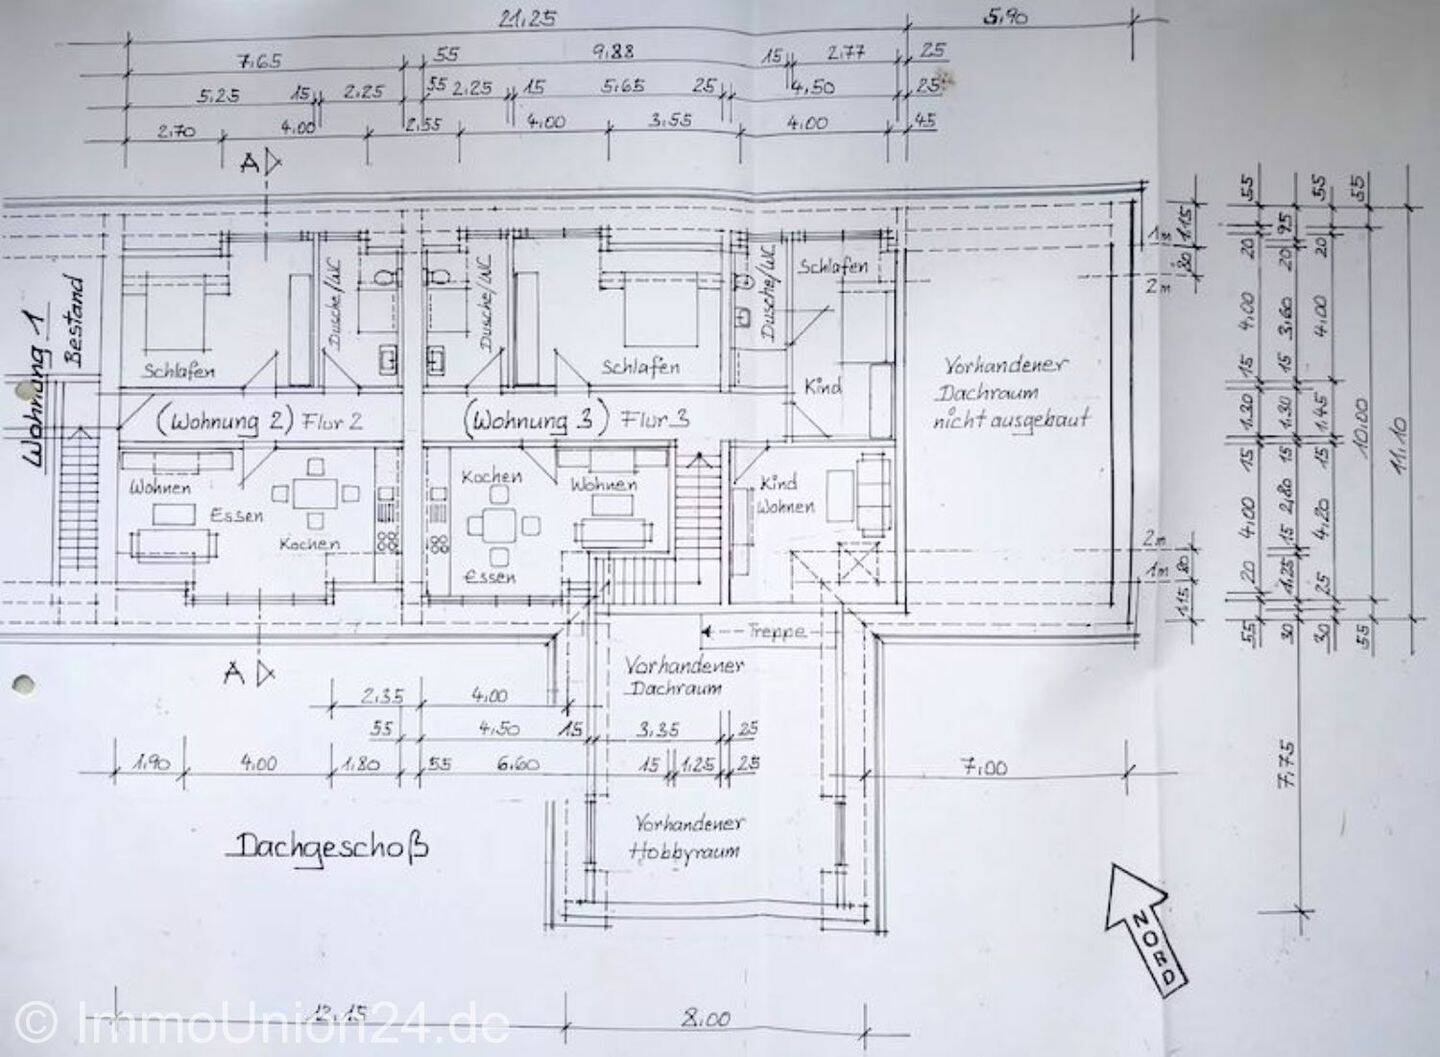 21,25 5,90
7,65 55 9,88 15 2,77 25
5,25 15 2,25 55 2,25 15 5,65 25 4,50 25
2,70 4,00 2,55 4,00 3,55 4,00 45
A
55 55 55
1,15 95
20 20 20
1m
80
2m
Schlafen
Dusche/WC
Dusche/WC
Dusche/WC
Wohnung 1
Bestand
4,00 3,60 4,00
Schlafen
Schlafen
Kind
Vorhandener
Dachraum
nicht ausgebaut
15 15
1,30 1,30 1,45
10,00
11,10
(Wohnung 2) Flur 2
(Wohnung 3) Flur 3
15 15 15
Wohnen
Essen
Kochen
Kochen
Wohnen
Essen
Kind
Wohnen
4,00 2,80 4,20
15
2m
80
1m
1,15
20 1,25 25
55 30 30 55
Treppe
A
Vorhandener
Dachraum
2,35 4,00
55 4,50 15 3,35 25
1,90 4,00 1,80 55 6,60 15 1,25 25
7,00
7,75
Dachgeschoß
Vorhandener
Hobbyraum
NORD
12,15 8,00
© ImmoUnion24.de